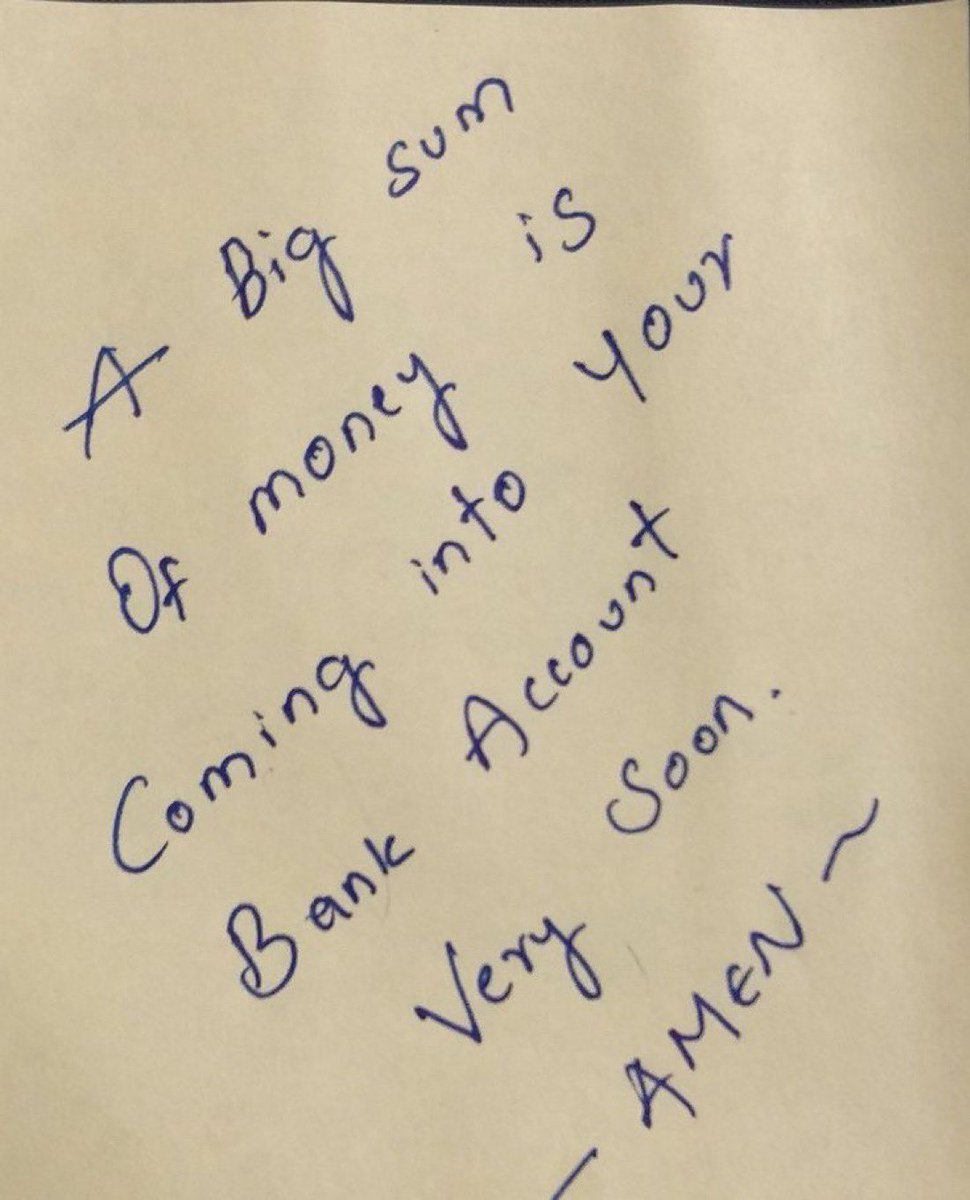 A Big sum
Of money is
Coming into your
Bank Account
Very Soon.
- AMEN ~